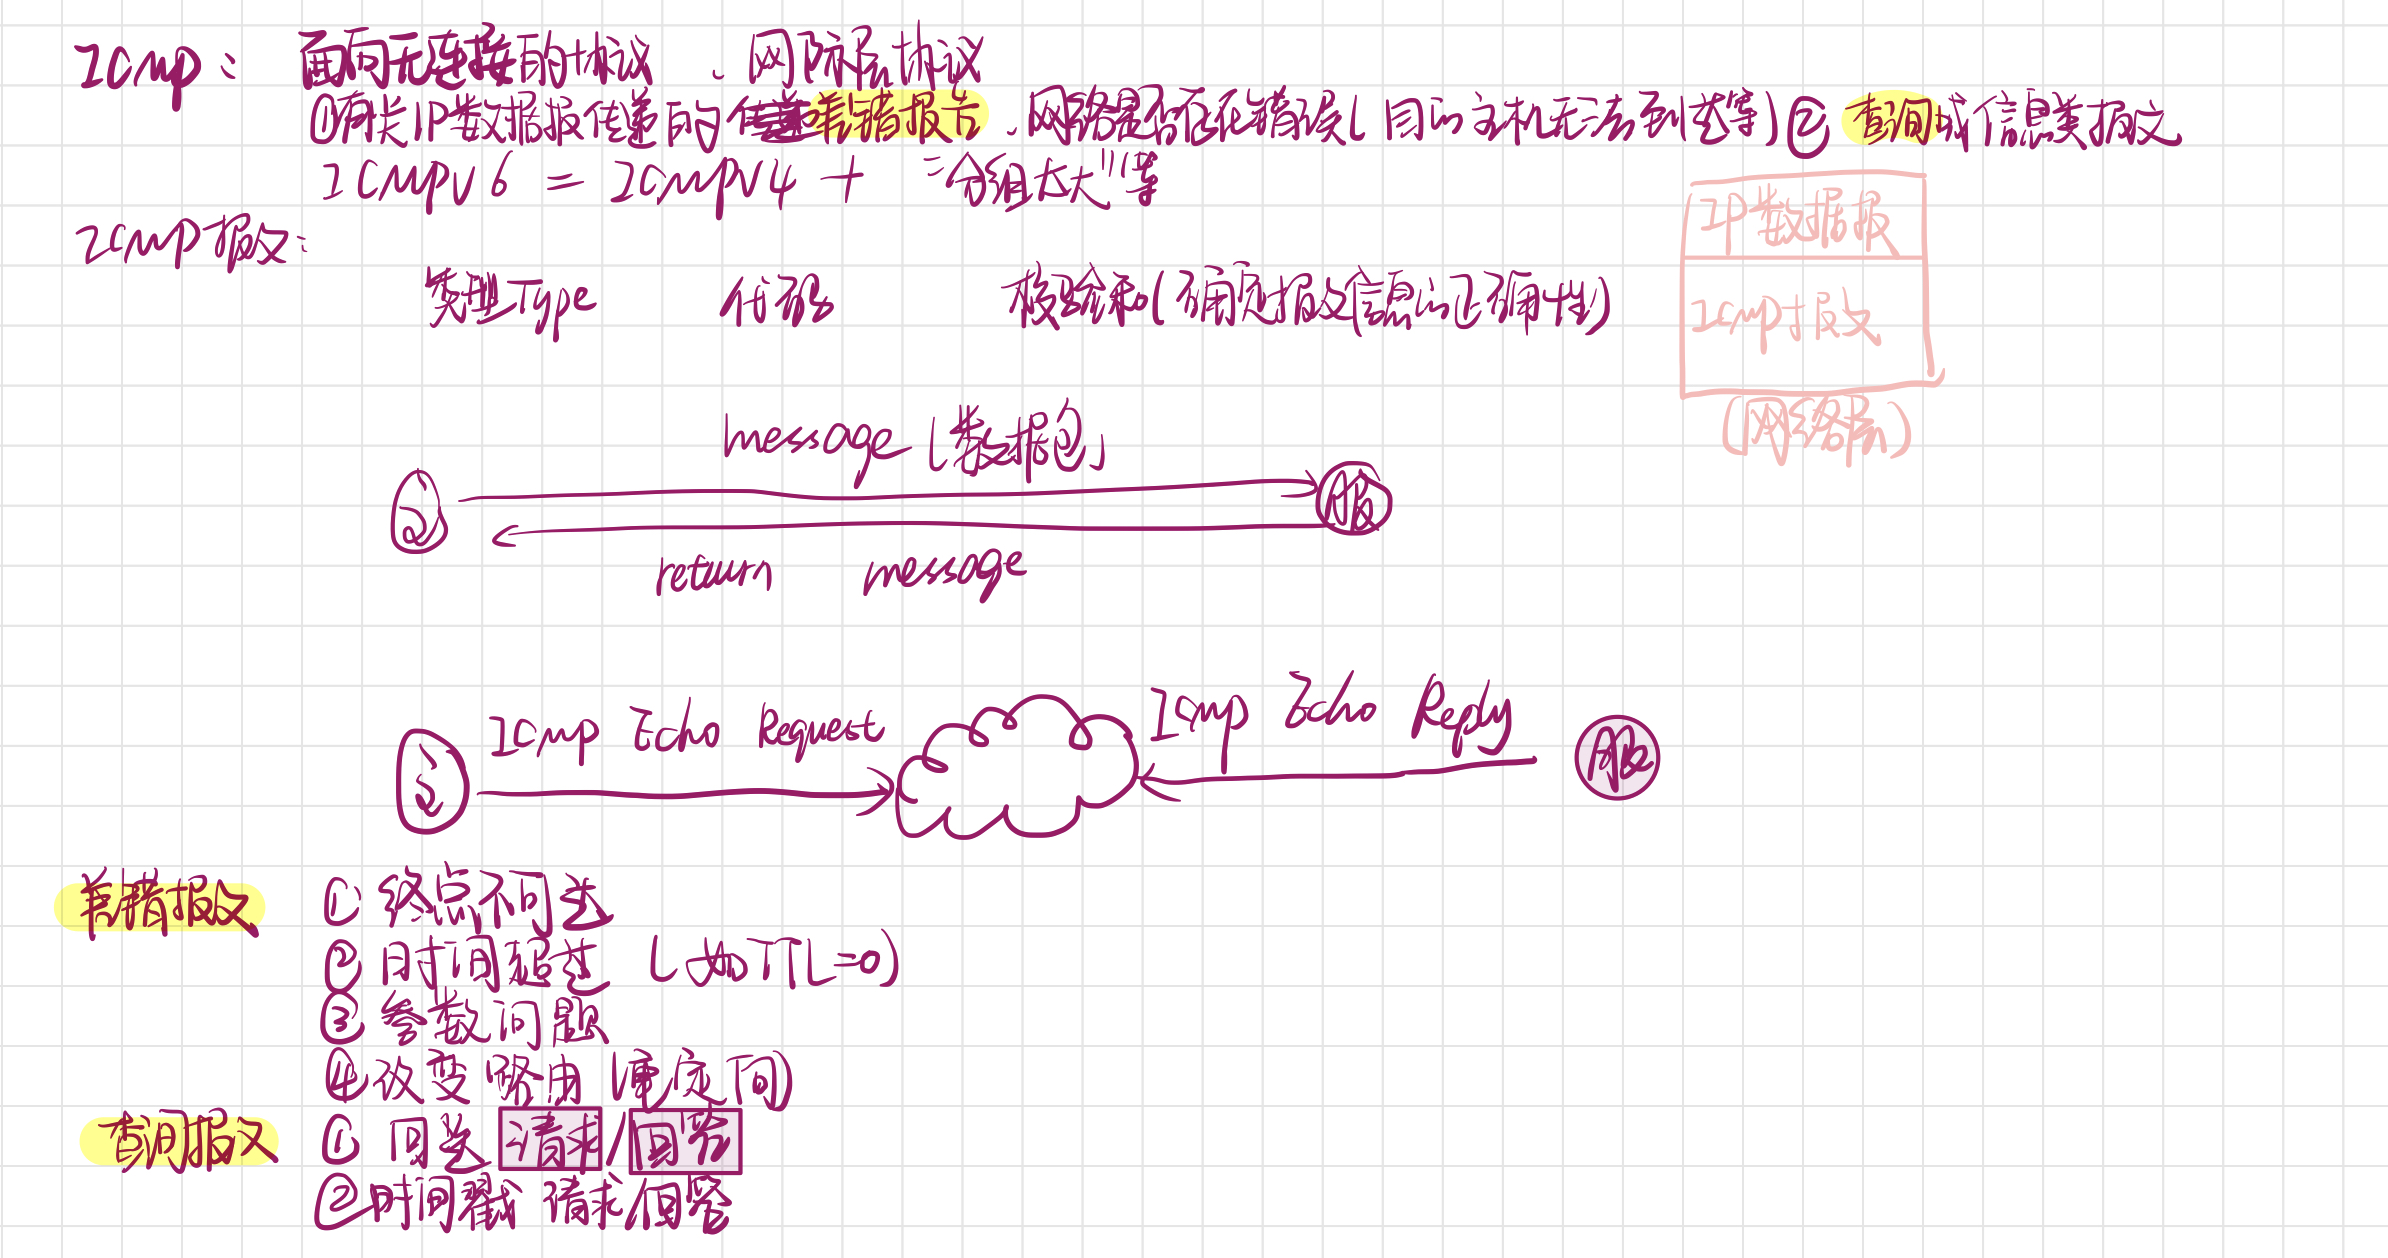 ICMP： 面向无连接的协议 、网际层协议
①有关IP数据报传递的差错报告、网络是否存在错误(目的主机无法到达等) ② 查询或信息类报文
ICMPv6 = ICMPv4 + "分组太大"等
IP数据报
ICMP报文：
类型Type 代码 校验和(确定报文信息的正确性)
ICMP报文
(网络层)
message (数据包)
服
return message
ICMP Echo Request
ICMP Echo Reply
服
差错报文 ① 终点不可达
② 时间超过 (如TTL=0)
③ 参数问题
④ 改变路由(重定向)
查询报文 ① 回送 请求/回答
② 时间戳 请求/回答